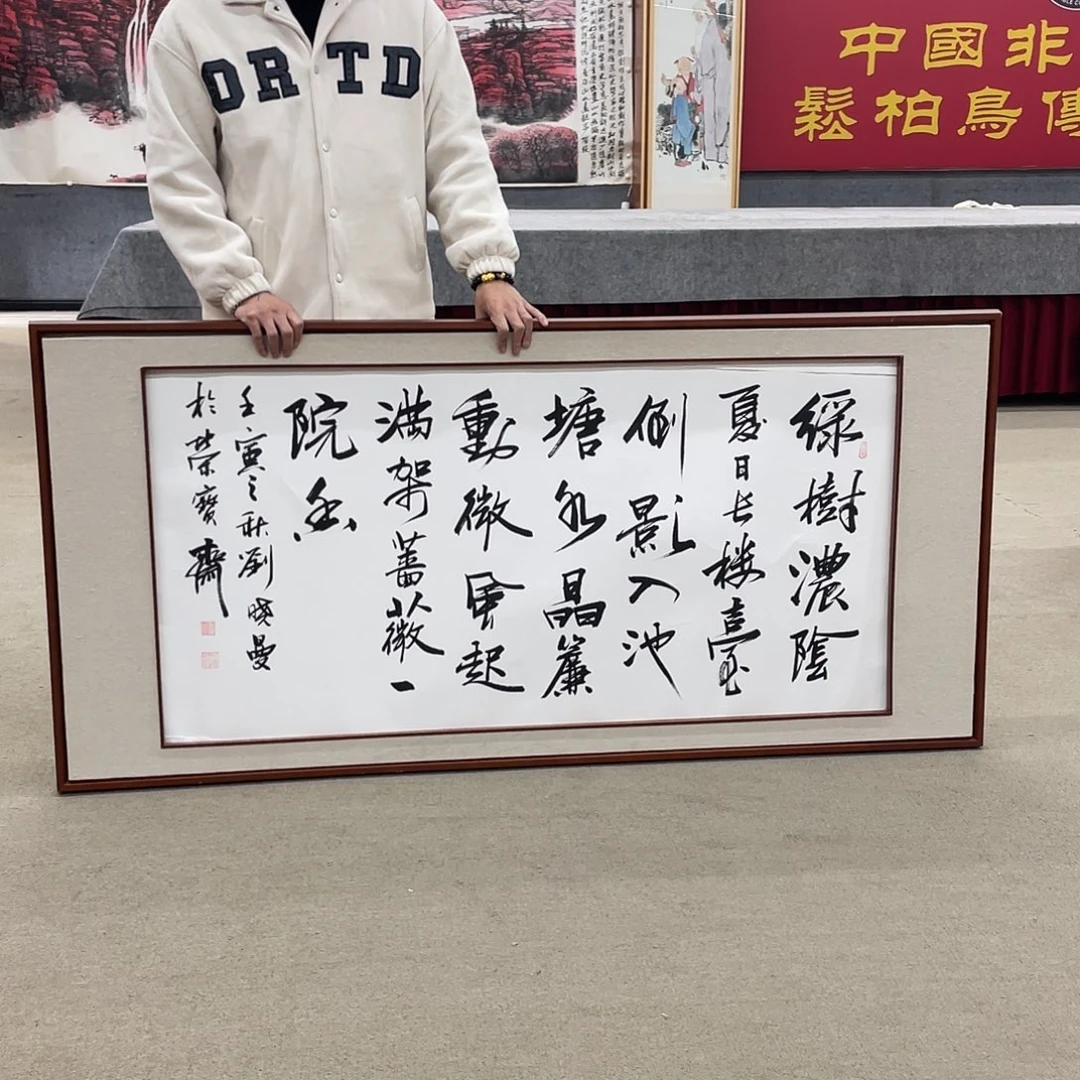 ORTD
中國非
鬆柏鳥傳
綠樹濃陰
夏日长楼臺
倒影入池
塘水晶簾
動微風起
满架薔薇一
院香
壬寅之秋劉晓曼
於榮寶齋